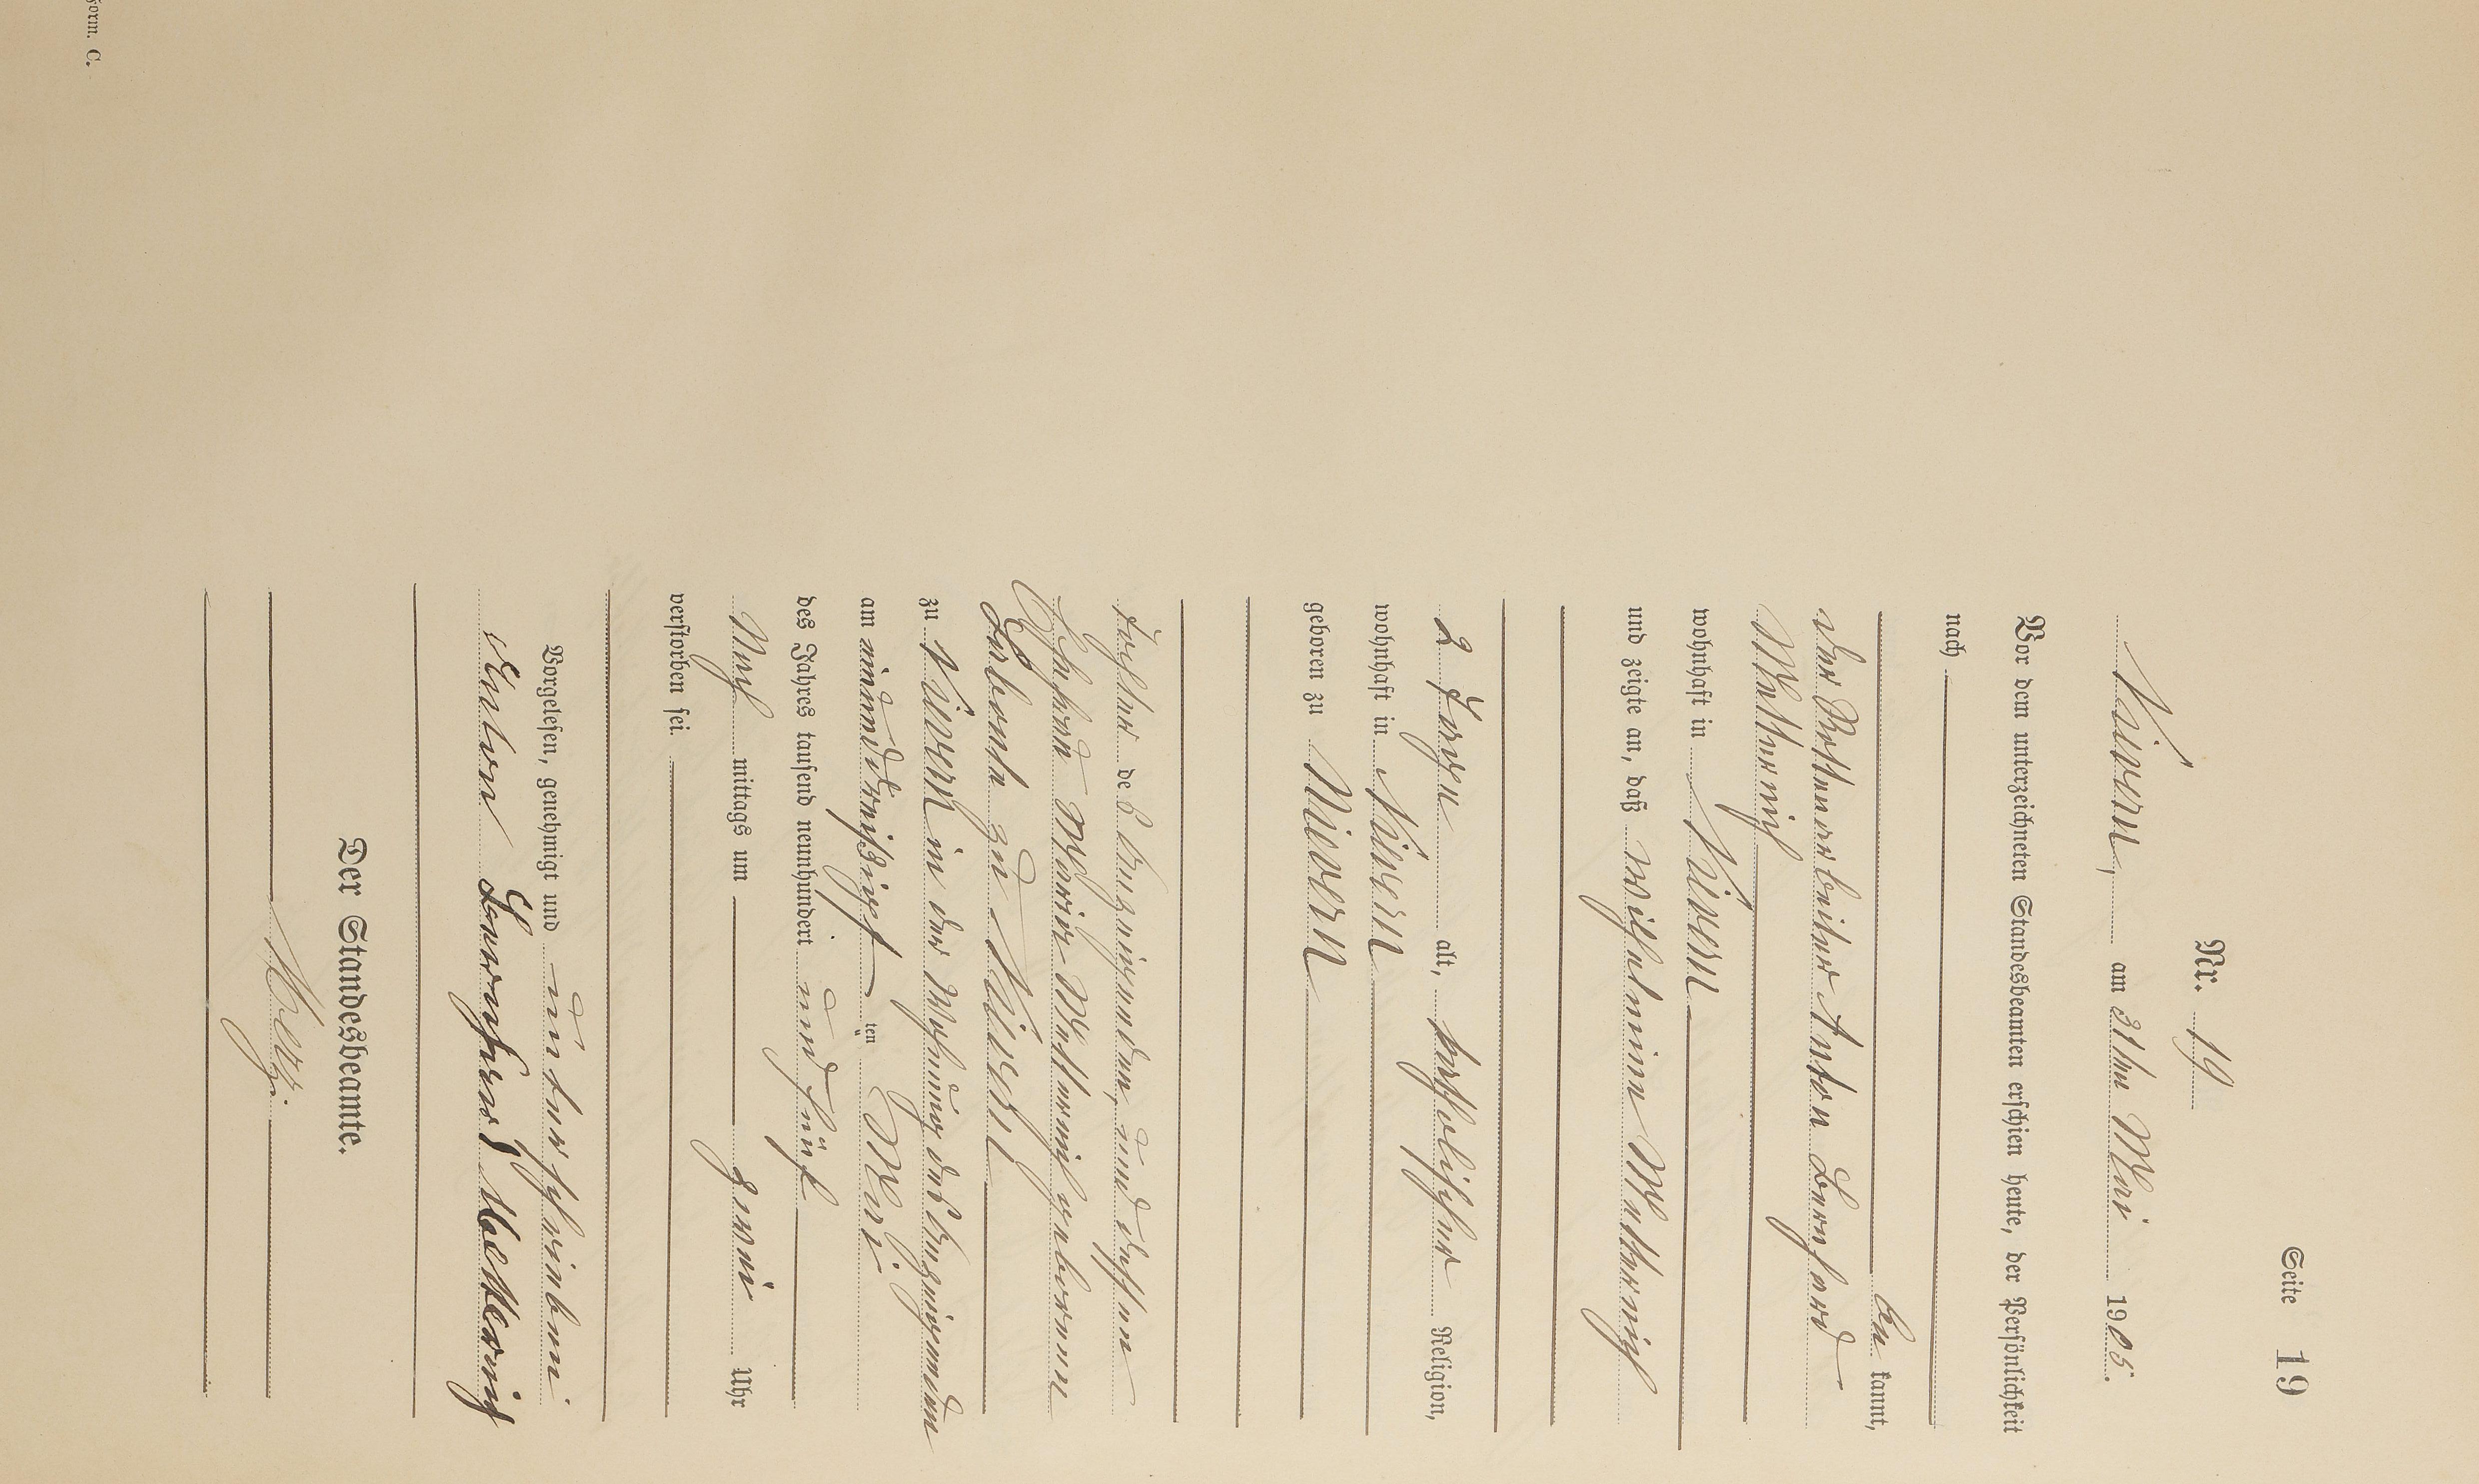 Seite 19
Nr. 19
Nievern, am 31ten Mai 1905.
Vor dem unterzeichneten Standesbeamten erschien heute, der Persönlichkeit
nach
be kannt,
der Rottenarbeiter Anton Bernhard
Metternich
wohnhaft in Nievern
und zeigte an, daß Wilhelmine Metternich
2 Tage alt, katholischer Religion,
wohnhaft in Nievern
geboren zu Nievern
Tochter des Anzeigenden, und dessen
Ehefrau Maria Metternich geborenen
zu Nievern
zu Nievern in der Wohnung des Anzeigenden
am einunddreißigsten Mai
des Jahres tausend neunhundert und fünf
Nach mittags um zwei Uhr
verstorben sei.
Vorgelesen, genehmigt und unterschrieben
Anton Bernhard Metternich
Der Standesbeamte.
Form. C.